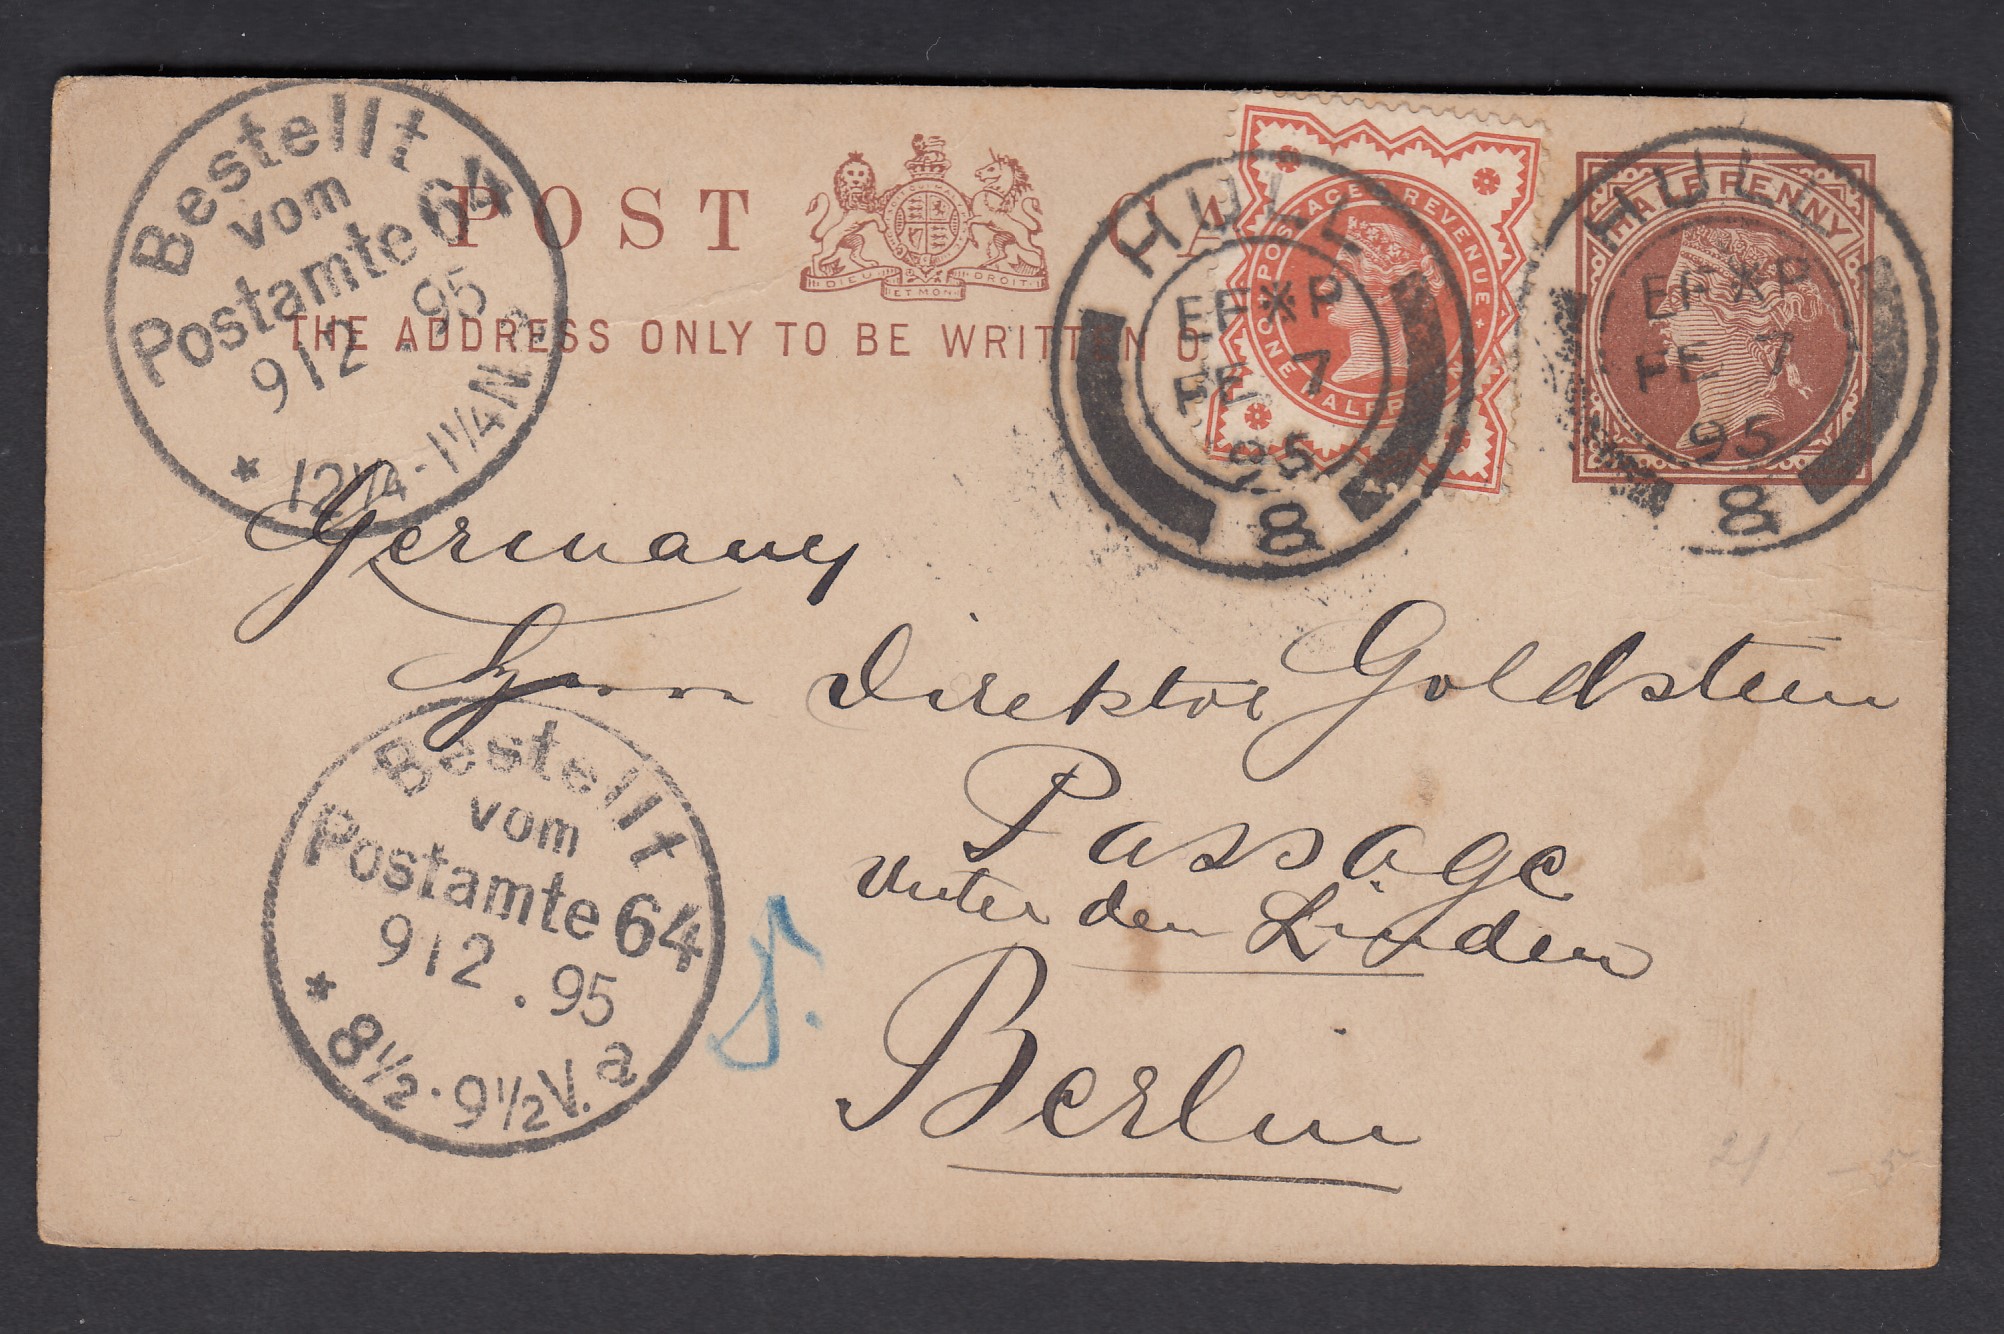 Bestellt
vom
Postamte 64
9 12 . 95
* 12 1/4 - 1 1/4 N.
POST CA
DIEU ET MON DROIT
THE ADDRESS ONLY TO BE WRITTEN O
HULL
EF*P
FE 7
95
8
POSTAGE REVENUE
ONE HALFP
HALFPENNY
HULL
EF*P
FE 7
95
8
Germany
Herrn Direktor Goldstein
Passage
Unter den Linden
Berlin
Bestellt
vom
Postamte 64
9 12 . 95
* 8 1/2 - 9 1/2 V. a
21